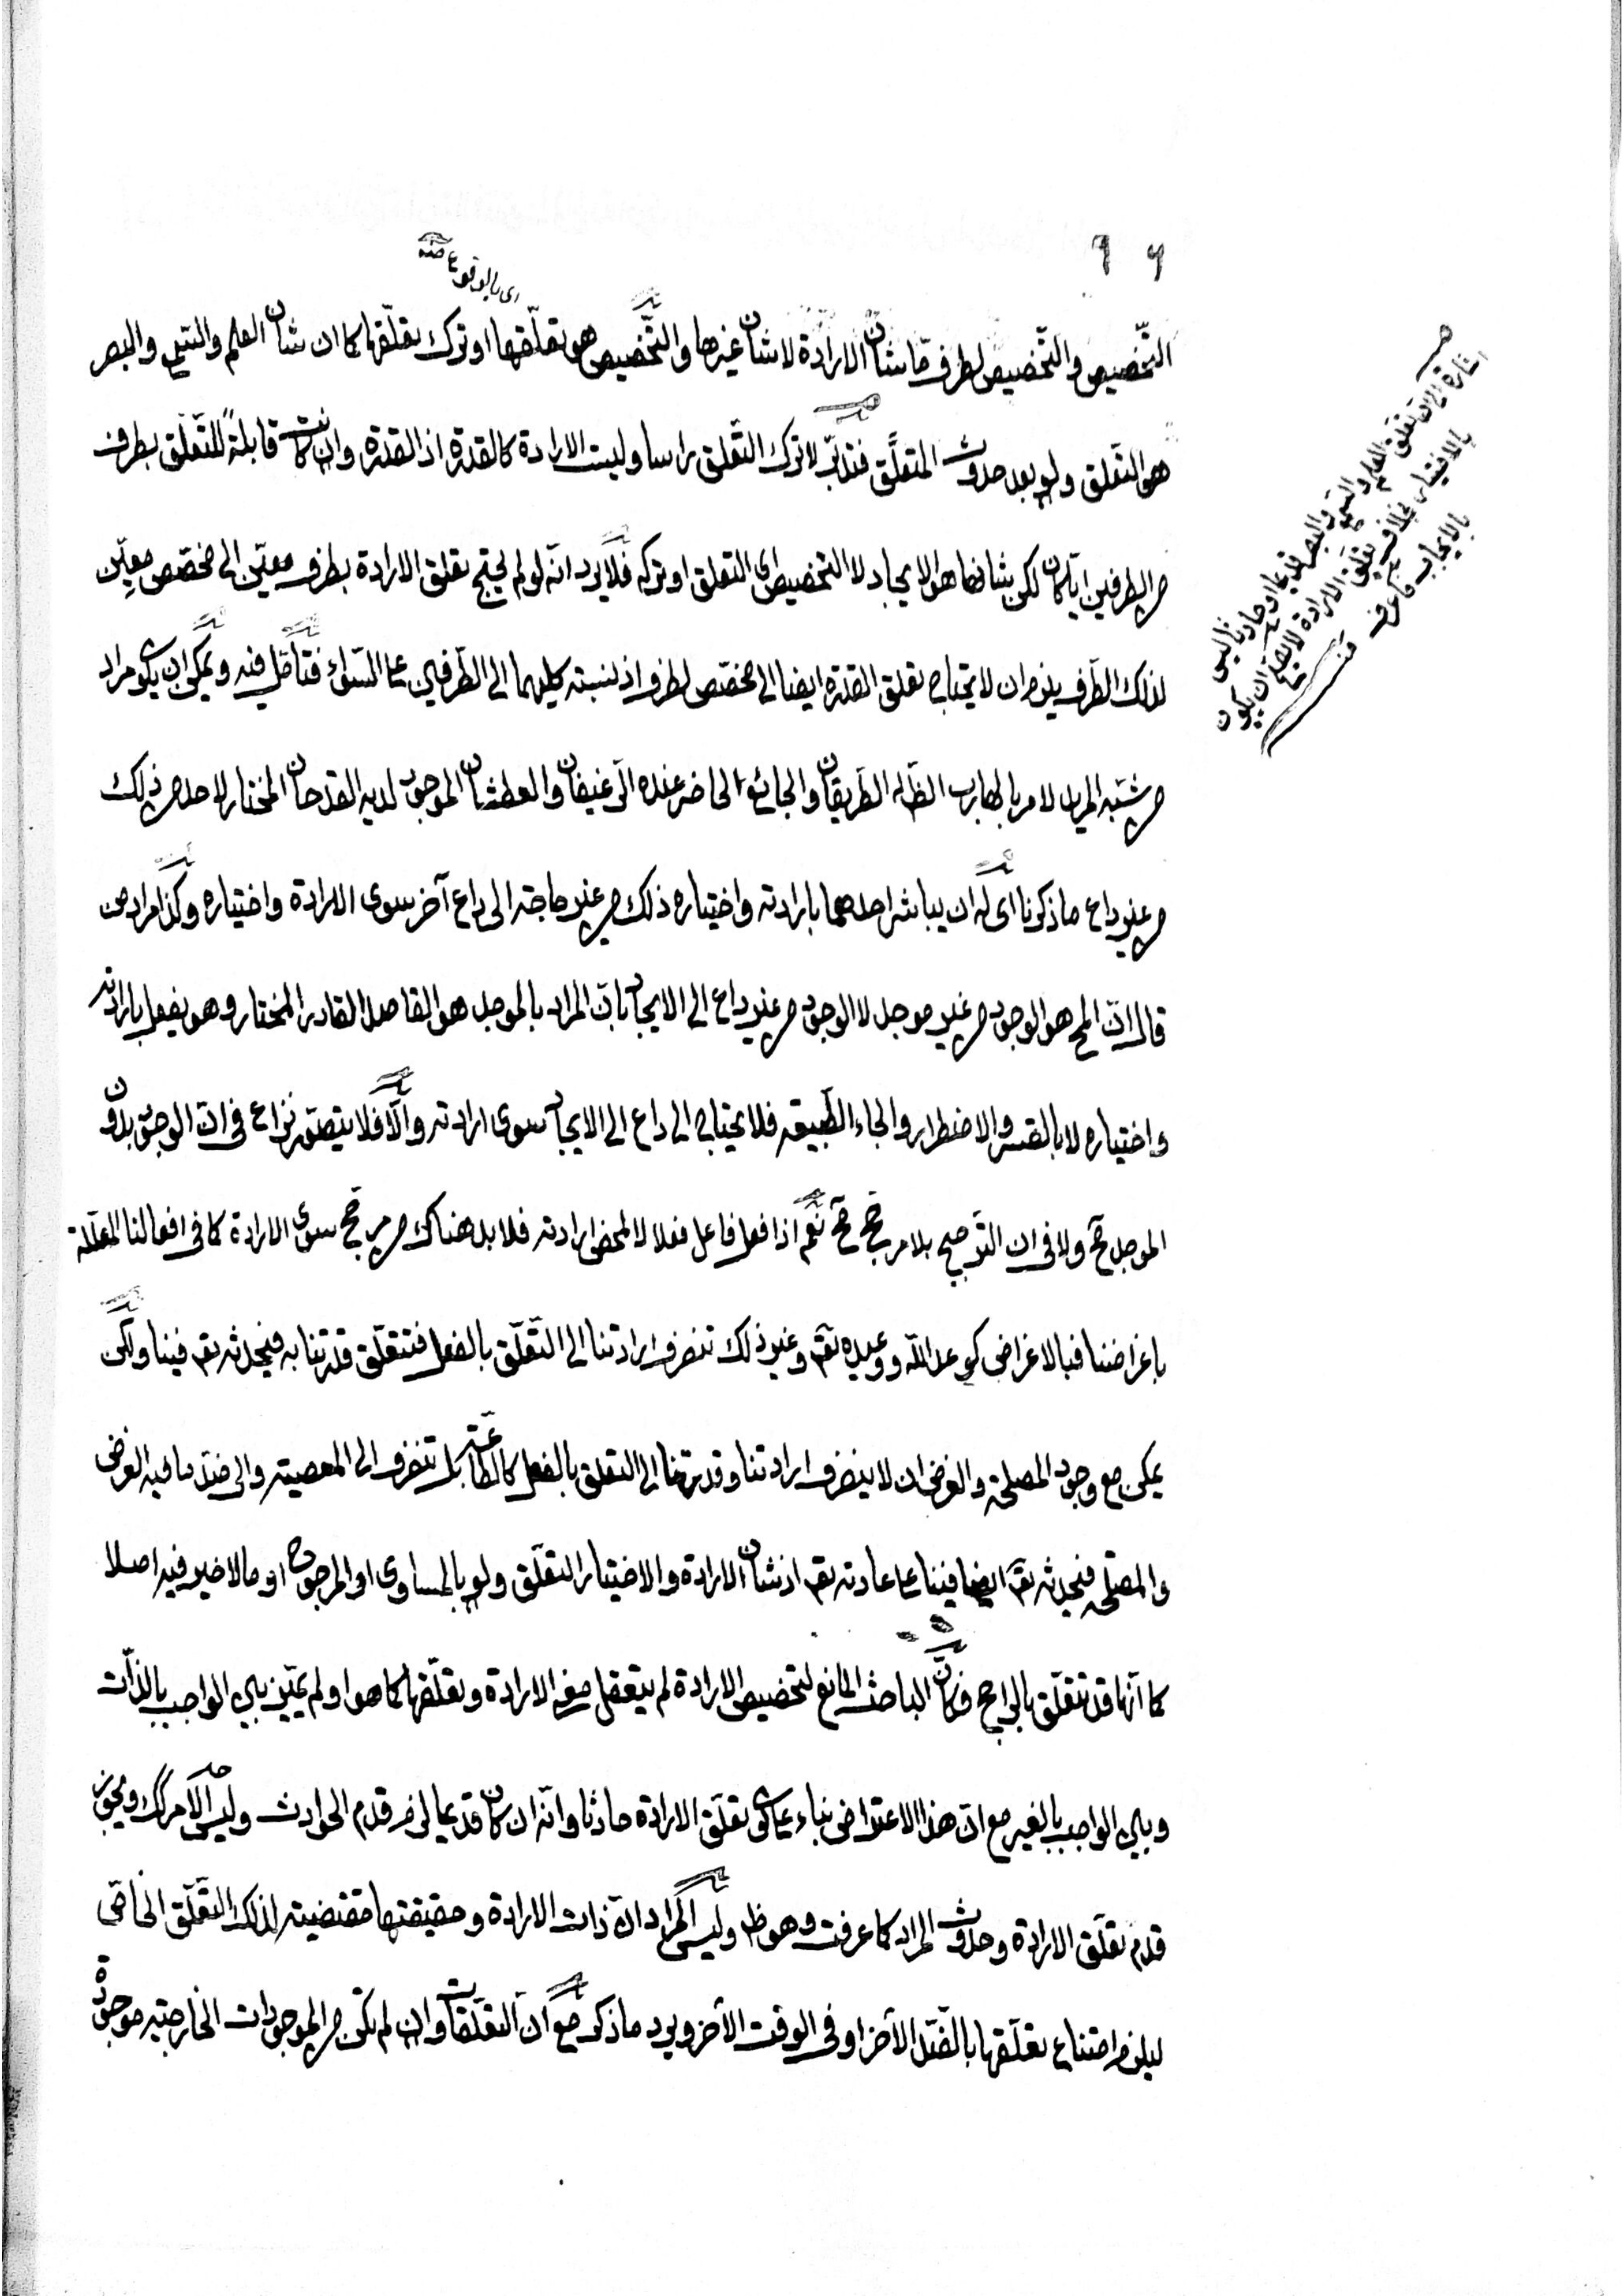 ٩٦
اى بالوقوع منه
التّخصيص والتّخصيص لطرف مّا شأن الارادة لا شأن غيرها والتّخصيص هو تعلّقها او ترك تعلّقها كما ان شأن العلم والسّمع والبصر
هو التعلق ولو بعد حدوث المتعلَّق فتدبّر لا ترك التّعلق راسا وليست الارادة كالقدرة اذ القدرة وان كانت قابلةً للتعلّق بطرف
من الطرفين ايّا كان لكن شانها هو الايجاد لا التخصيص اى التعلق او تركه فلا يرد انّه لو لم يحتج تعلق الارادة بطرف معيّن الى مخصّص معيّن
لذلك الطّرف يلزم ان لا يحتاج تعلق القدرة ايضا الى مخصّص لطرف اذ نسبته كليهما الى الطّرفين عا السّواء فتأمّل فيه ويمكن ان يكون مراد
من شبّه المريد لامر بالهارب الظاله الطّريقان والجائع الحاضر عنده الرّغيفان والعطشان الموجود لديه القدحان المختار لاحد من ذلك
من غير داع ما ذكرنا اى له ان يباشر احدهما بارادته واختياره ذلك من غير حاجته الى داع آخر سوى الارادة واختياره وكذا مراد من
قال انّ المح هو الوجود من غير موجد لا الوجود من غير داع الى الايجاد بانّ المراد بالموجد هو الفاعل القادر المختار وهو يفعل بارادته
واختياره لا بالقسر والاضطرار والجاء الطّبيعه فلا يحتاج الى داع الى الايجاد سوى ارادته والّا فلا يتصوّر نزاع فى انّ الوجود بدون
الموجد مح ولا فى ان التّرجيح بلا مرجّح مح نعم اذا فعل فاعل فعلا لا لمحض ارادته فلا بد هناك من مرجّح سوى الارادة كما فى افعالنا المعلّلة
باغراضنا فبالاغراض كوعد اللّه ووعيده تع وغير ذلك تنصرف ارادتنا الى التّعلّق بالفعل فتتعلّق قدرتنا به فيحدثه تع فينا ولكن
يمكن مع وجود المصلحة والغرض ان لا ينصرف ارادتنا وقدرتنا الى التعلق بالفعل كالطّاعة بل تنصرف الى المعصيته والى ضدّ ما فيه الغرض
والمصلحه فيحدثه تع ايضا فينا عا عادته تع اذ شأن الارادة والاختيار التعلّق ولو بالمساوى او المرجوح او ما لا خير فيه اصلا
كما انّها قد تتعلّق بالراجح فكأنّ الباحث المانع لتخصيص الارادة لم يتعقل معنى الارادة وتعلّقها كما هو او لم يميّز بين الواجب بالذّات
وبين الواجب بالغير مع انّ هذا الاعتراض بناء عا كون تعلّق الارادة حادثا وانّه ان كان قديما لزم قدم الحوادث وليس الامر كك ويجوز
قدم تعلّق الارادة وحدوث المراد كما عرفت وهو ظ وليس المراد ان ذات الارادة وحقيقتها مقتضيته لذلك التّعلّق الخاصّ
ليلزم امتناع تعلّقها بالضّد الآخر او فى الوقت الآخر ويرد ما ذكر مع انّ التعلّقات وان لم تكن من الموجودات الخارجيّه موجودة
اشارة الى ان تعلق العلم والسّمع والبصر قديما او حادثا ليس
بالاختيار بخلاف تعلّق الارادة لا يلزم ان يكون
بالايجاب كما عرف منه